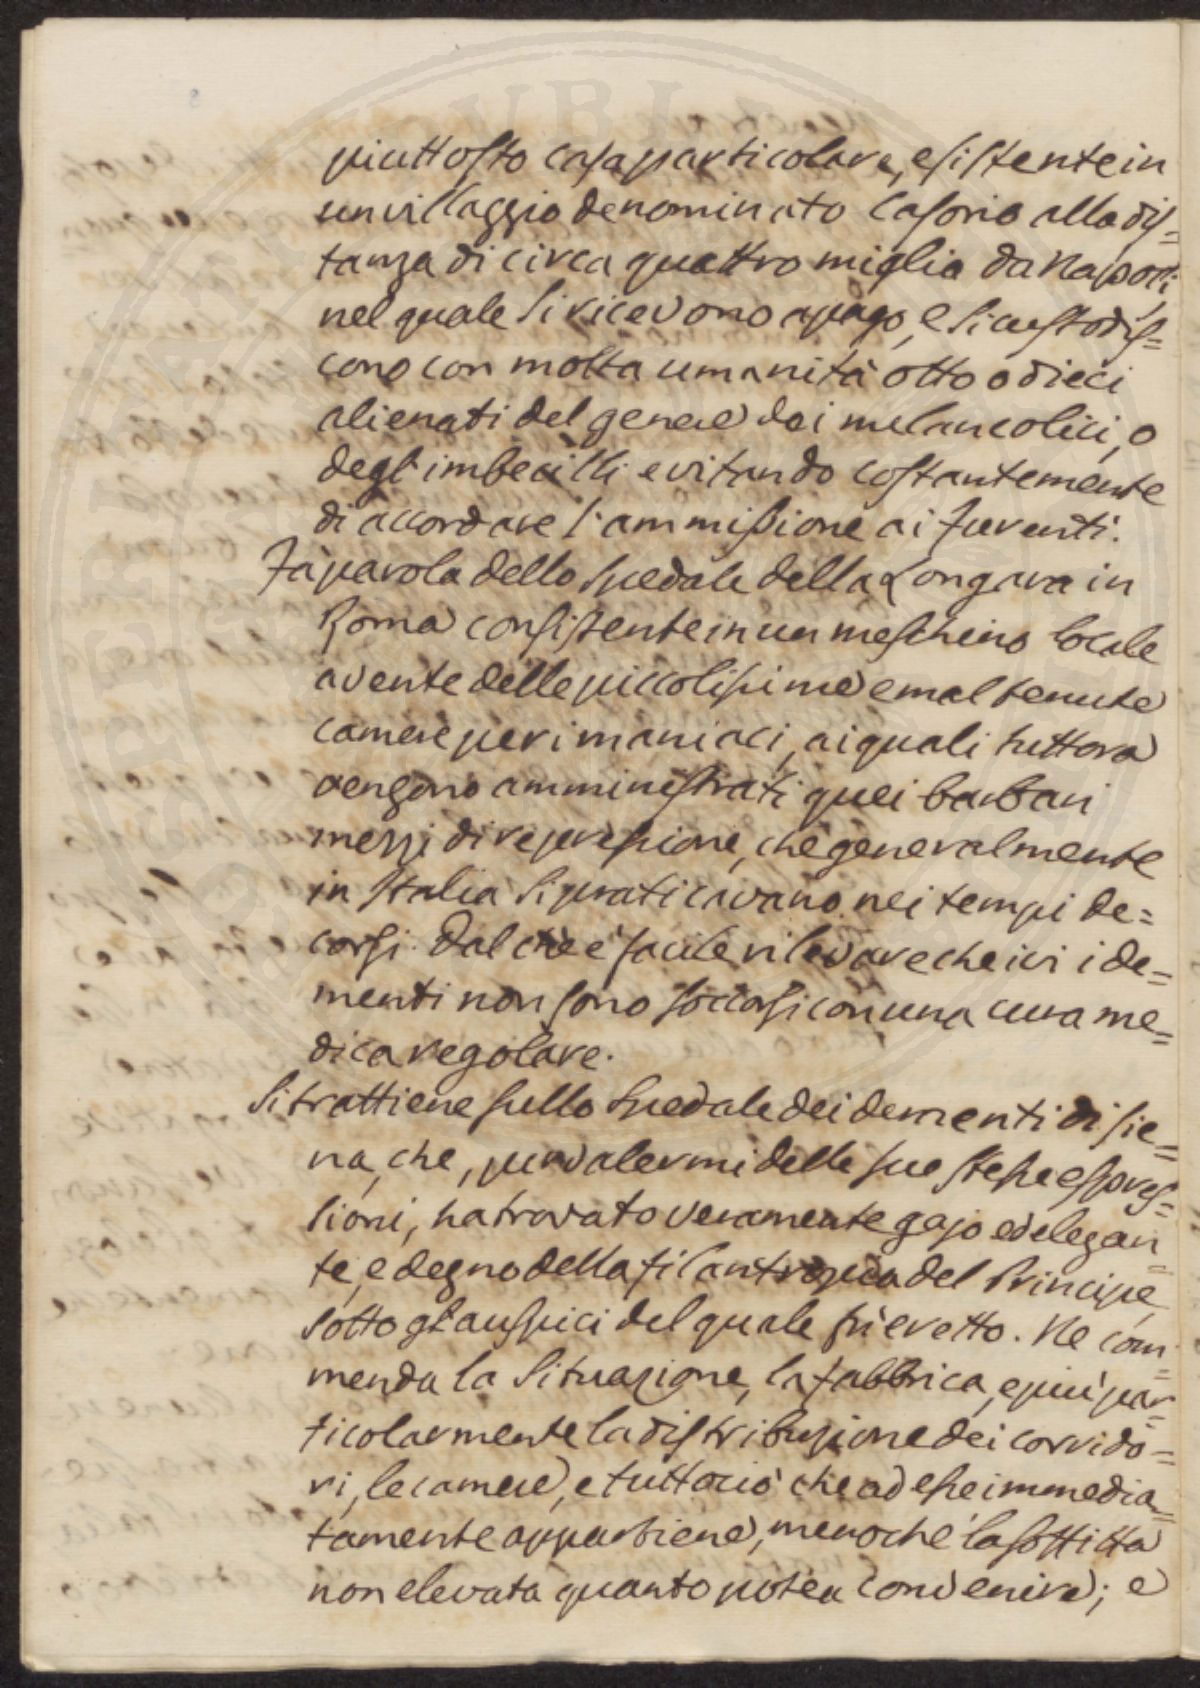 piuttosto casa particolare, esistente in
un villaggio denominato Casorio alla dis=
tanza di circa quattro miglia da Napoli
nel quale si ricevono a pago, e si custodis=
cono con molta umanità otto o dieci
alienati del genere dei melancolici, o
degl'imbecilli evitando costantemente
di accordare l'ammissione ai furenti.
Fà parola dello Spedale della Longara in
Roma consistente in un meschino locale
avente delle piccolissime e mal tenute
camere per i maniaci, ai quali tuttora
vengono amministrati quei barbari
mezzi di repressione, che generalmente
in Italia si praticavano nei tempi de=
corsi. Dal che è facile rilevare che ivi i de=
menti non sono soccorsi con una cura me=
dica regolare.
Si trattiene sullo Spedale dei dementi di Sie=
na, che, per valermi delle sue stesse espres=
sioni, ha trovato veramente gajo ed elegan=
te, e degno della filantropia del Principe
sotto gl'auspici del quale fù eretto. Ne com=
menda la situazione, la fabbrica, e più par=
ticolarmente la distribuzione dei corrido=
ri, le camere, e tuttociò che ad esse immedia=
tamente appartiene, menochè la soffitta
non elevata quanto potea convenire; e